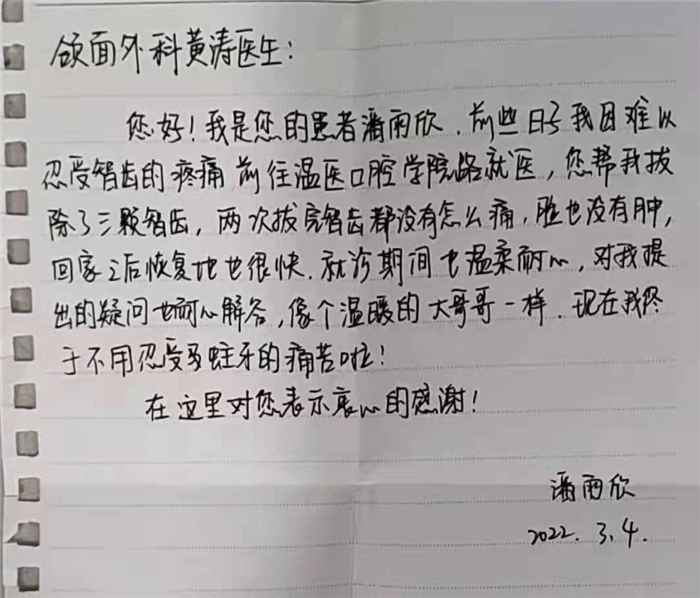 颌面外科黄涛医生：
您好！我是您的患者潘雨欣．前些日子我因难以
忍受智齿的疼痛前往温医口腔学院路就医，您帮我拔
除了三颗智齿，两次拔完智齿都没有怎么痛，脸也没有肿，
回家之后恢复地也很快．就诊期间也温柔耐心，对我提
出的疑问也耐心解答，像个温暖的大哥哥一样．现在我终
于不用忍受蛀牙的痛苦啦！
在这里对您表示衷心的感谢！
潘雨欣
2022．3.4．